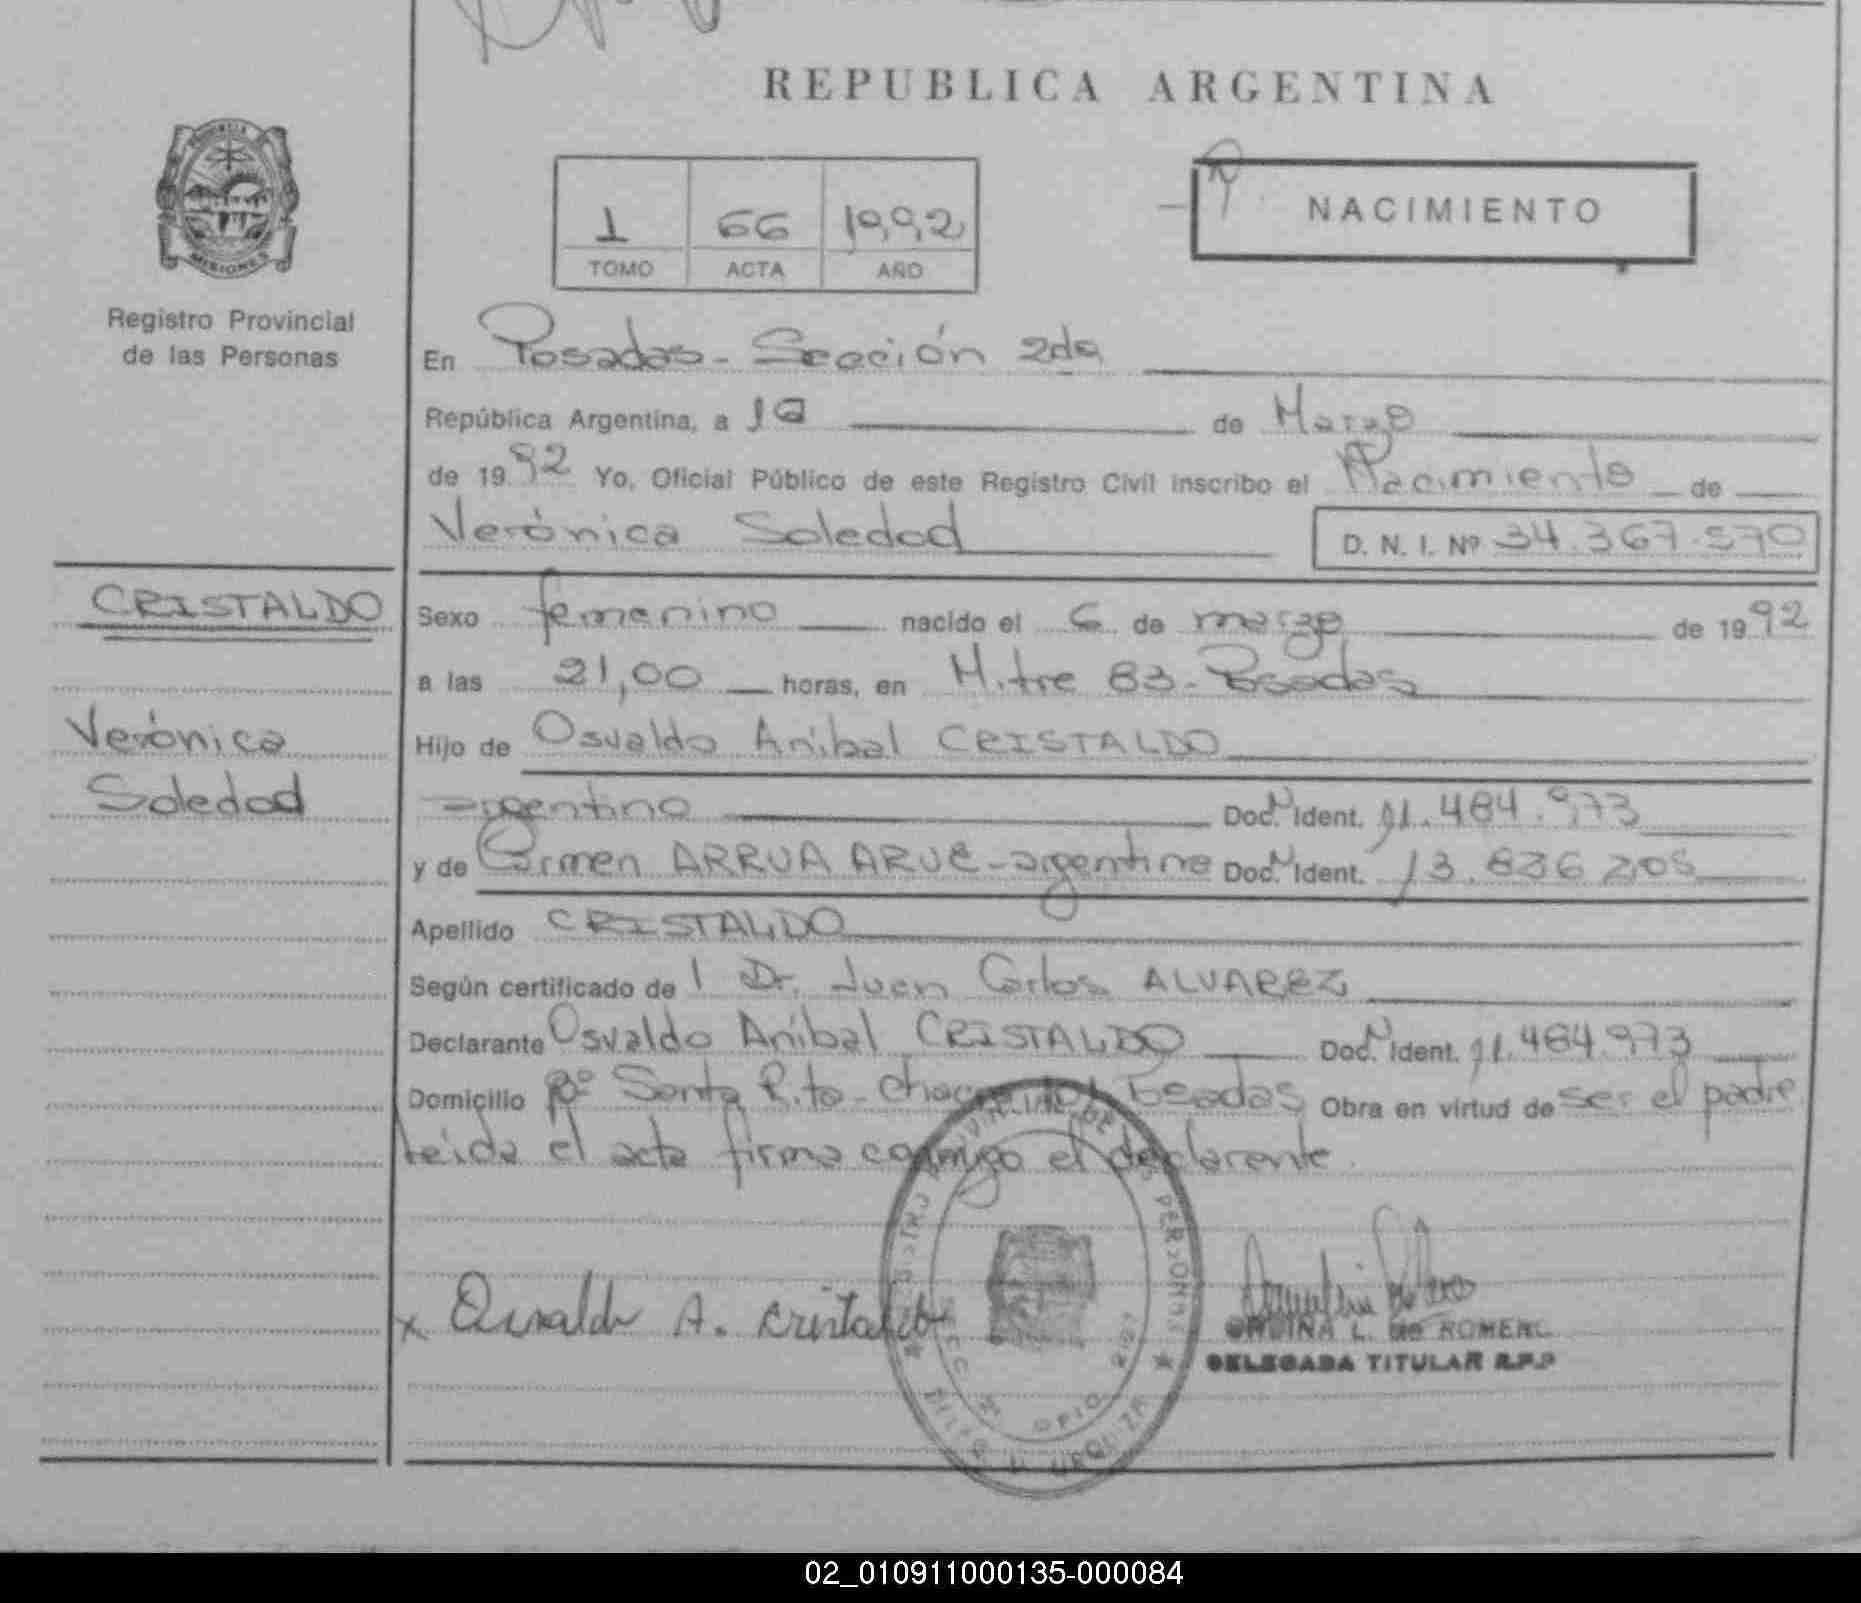 REPUBLICA ARGENTINA
MISIONES
Registro Provincial
de las Personas
1 66 1992
TOMO ACTA AÑO
NACIMIENTO
En Posadas - Sección 2da
República Argentina, a de Marzo
de 1992 Yo, Oficial Público de este Registro Civil inscribo el Nacimiento de
Verónica Soledad D. N. I. Nº 34.367.570
CRISTALDO
Verónica
Soledad
Sexo femenino nacido el 6 de marzo de 1992
a las 21,00 horas, en Mitre 83 - Posadas
Hijo de Osvaldo Aníbal CRISTALDO
argentino Doc. N Ident. 11.484.973
y de Carmen ARRUA ARUE - argentina Doc. N Ident. 13.836.205
Apellido CRISTALDO
Según certificado de l Dr. Juan Carlos ALVAREZ
Declarante Osvaldo Aníbal CRISTALDO Doc. N Ident. 11.484.973
Domicilio Bº Santa Rita - Posadas Obra en virtud de ser el padre
Leída el acta firma conmigo el declarante.
x Osvaldo A. Cristaldo
L. de ROMERO
DELEGADA TITULAR R.P.P
02_010911000135-000084